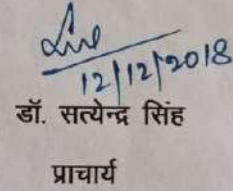 12/12/2018
डॉ. सत्येन्द्र सिंह
प्राचार्य